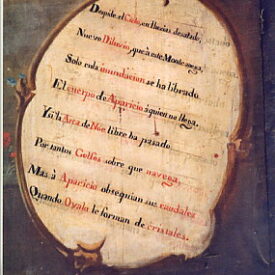 Despide el Cielo, en lluvias desatado,
Nuevo Diluvio, que à este Monte anega,
Solo en la inundacion se ha librado
El cuerpo de Aparicio à quien no llega.
Ya la Arca de Noe libre ha pasado
Por tantos Golfos sobre que navega,
Mas à Aparicio obsequian sus caudales
Quando Ovalo le forman de cristales.